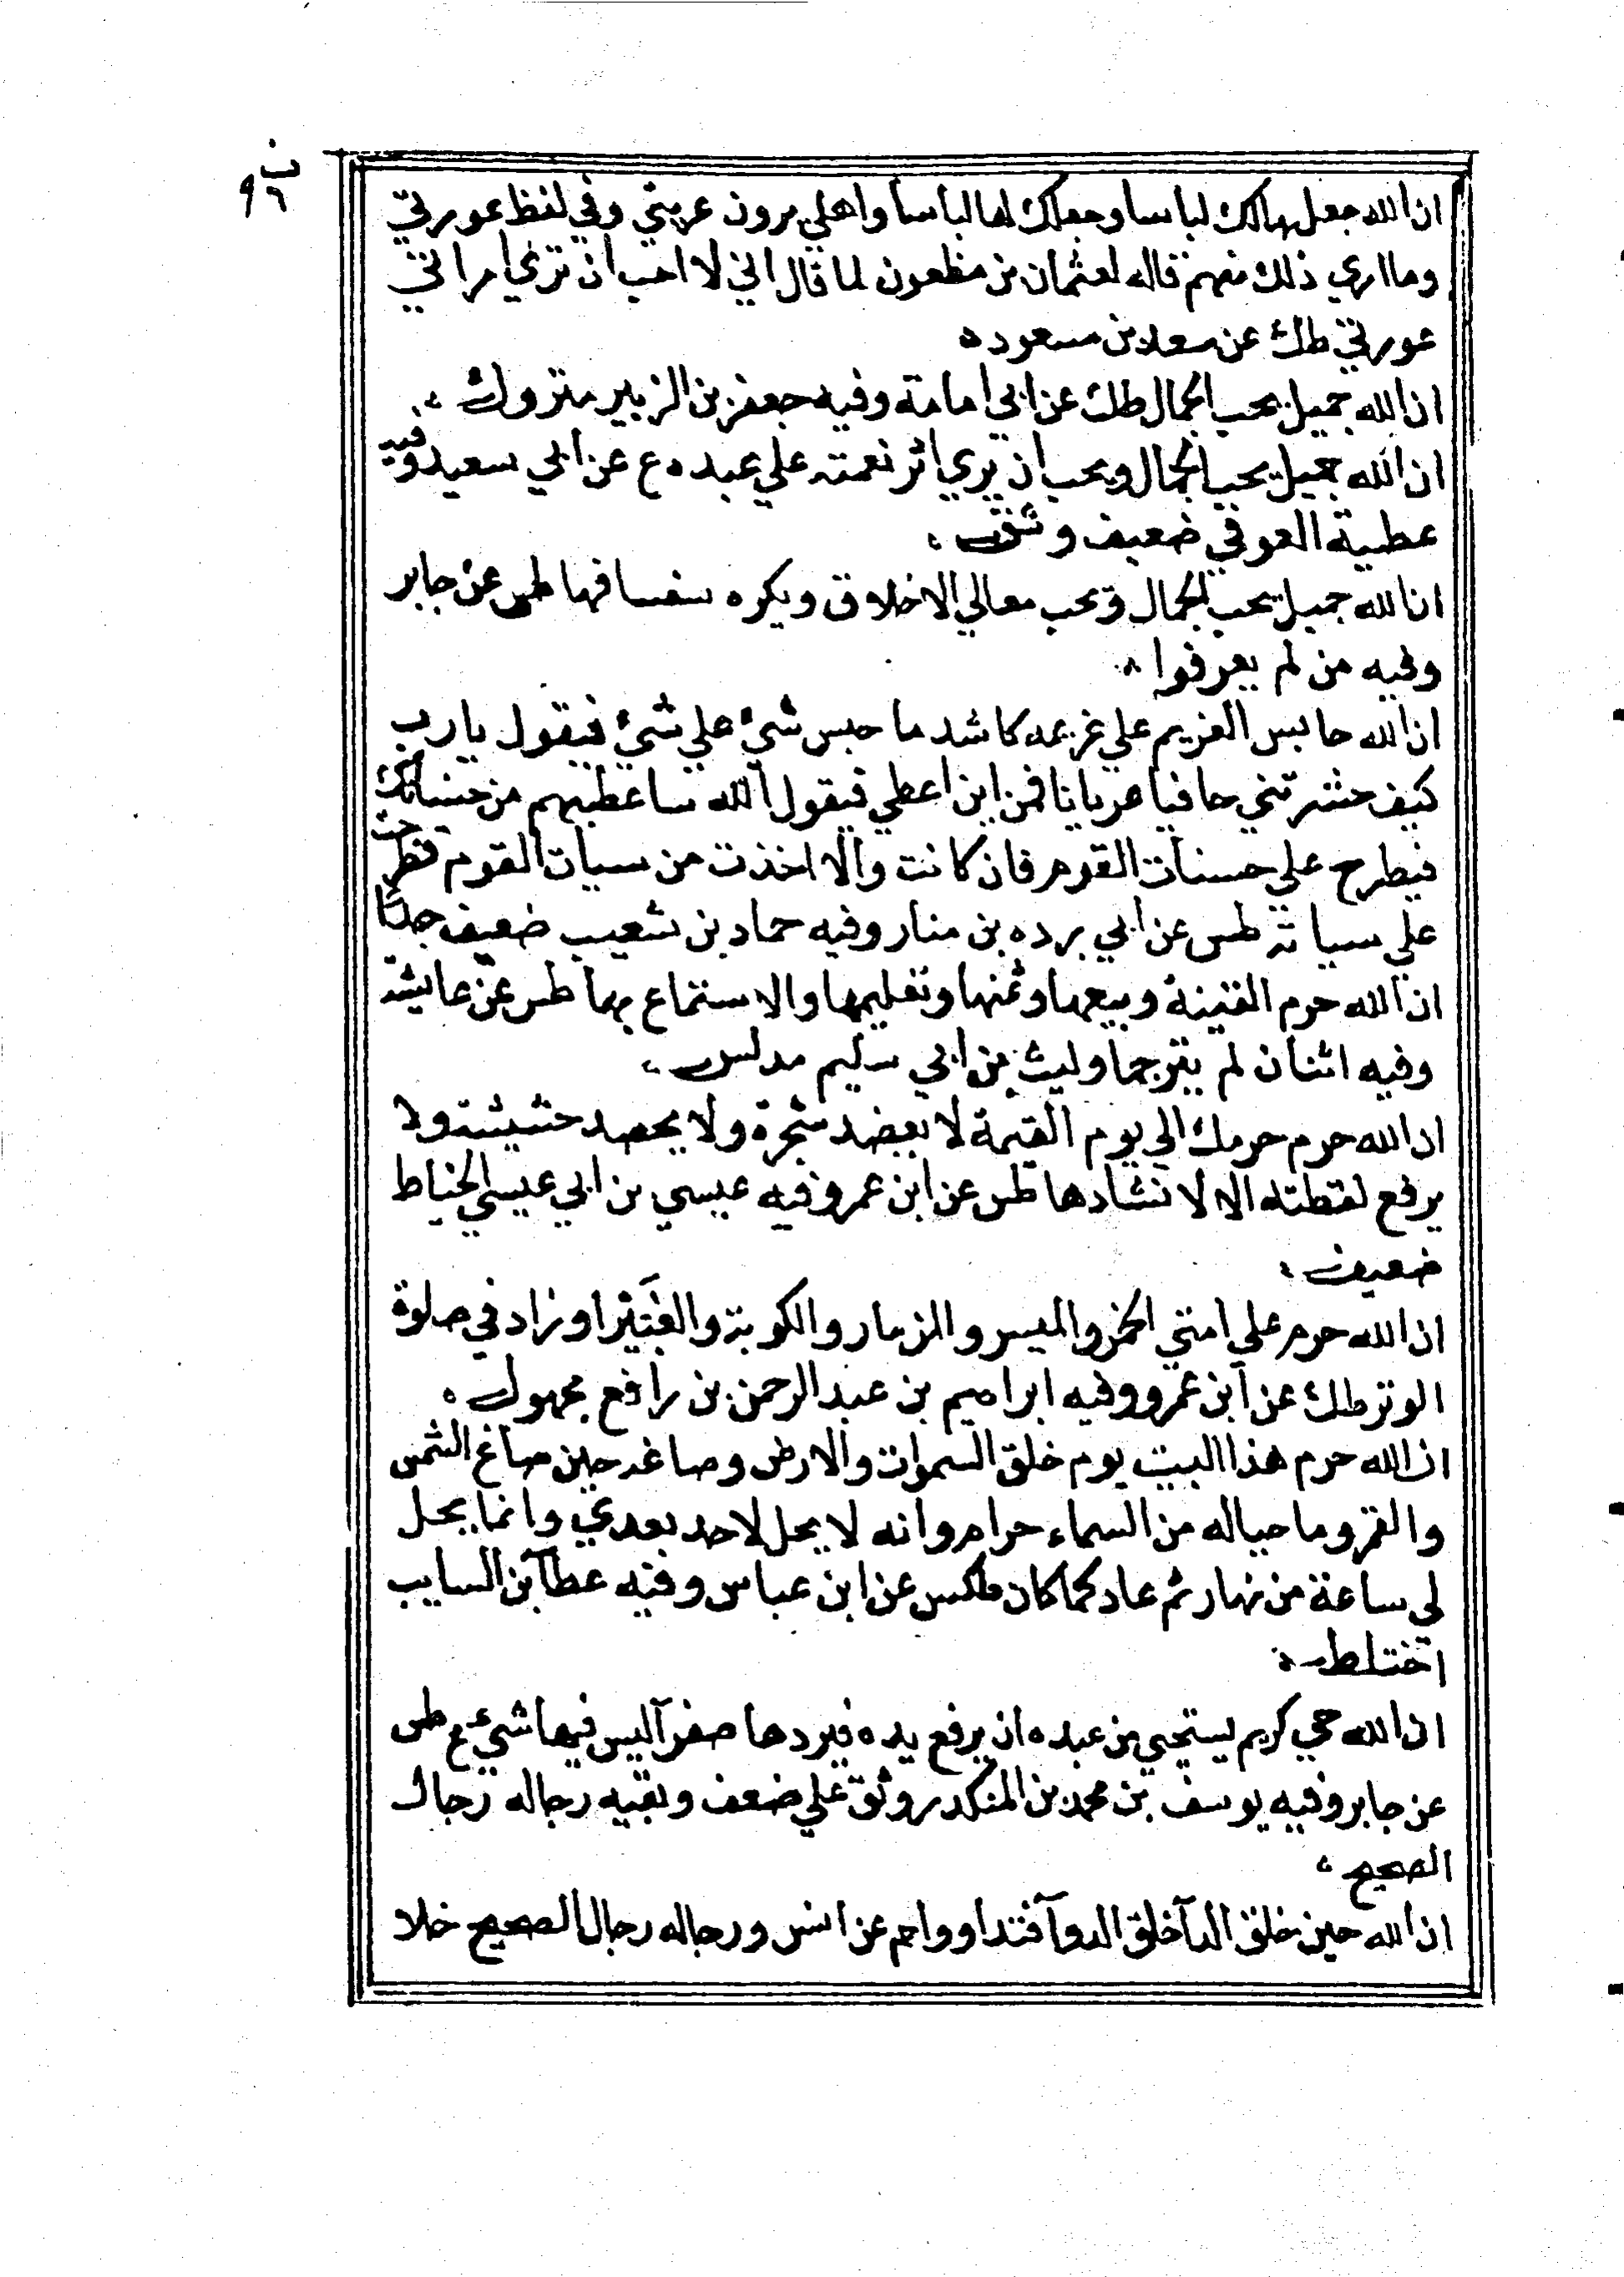 ب
٩٦
ان الله جعلها لك لباسا وجعلك لها لباسا واهلي يرون عريتي وفي لفظ عورتي
وما اري ذلك منهم قاله لعثمان بن مظعون لما قال اني لا احب ان تري امراتي
عورتي طك عن سعد بن مسعود ه
ان الله جميل يحب الجمال طك عن ابي امامة وفيه جعفر بن الزبير متروك
ان الله جميل يحب الجمال ويحب ان يري اثر نعمته علي عبده ع عن ابي سعيد وفيه
عطية العوفي ضعيف وثق
ان الله جميل يحب الجمال ويحب معالي الاخلاق ويكره سفسافها طس عن جابر
وفيه من لم يعرفوا
ان الله حابس الغريم علي غريمه كاشد ما حبس شيء علي شيء فيقول يا رب
كيف حشرتني حافيا عريانا فمن اين اعطي فيقول الله ساعطيهم من حسناتك
فيطرح علي حسنات القوم فان كانت والا اخذت من سيات القوم فطرحت
علي سياته طس عن ابي برده بن منار وفيه حماد بن شعيب ضعيف جدا
ان الله حرم القينة وبيعها وثمنها وتعليمها والاستماع بها طس عن عايشة
وفيه اثنان لم يترجما وليث بن ابي سليم مدلس
ان الله حرم حرمك الي يوم القيمة لا يعضد شجرة ولا يحصد حشيشة ولا
يرفع لقطته الا لانشادها طس عن ابن عمر وفيه عيسي بن ابي عيسي الخياط
ضعيف
ان الله حرم علي امتي الخمر والميسر والمزمار والكوبة والغبيرا وزاد في صلوة
الوتر طك عن ابن عمرو وفيه ابراهيم بن عبد الرحمن بن رافع مجهول
ان الله حرم هذا البيت يوم خلق السموات والارض وصاغه حين صاغ الشمس
والقمر وما حياله من السماء حرام وانه لا يحل لاحد بعدي وانما يحل
لي ساعة من نهار ثم عاد كما كان طكس عن ابن عباس وفيه عطا بن السايب
اختلط
ان الله حي كريم يستحيي من عبده ان يرفع يده فيردها صفرا ليس فيها شيء ع طس
عن جابر وفيه يوسف بن محمد بن المنكدر وثق علي ضعف وبقيه رجاله رجال
الصحيح
ان الله حين خلق الدآ خلق الدوآ فتداووا حم عن انس ورجاله رجال الصحيح خلا